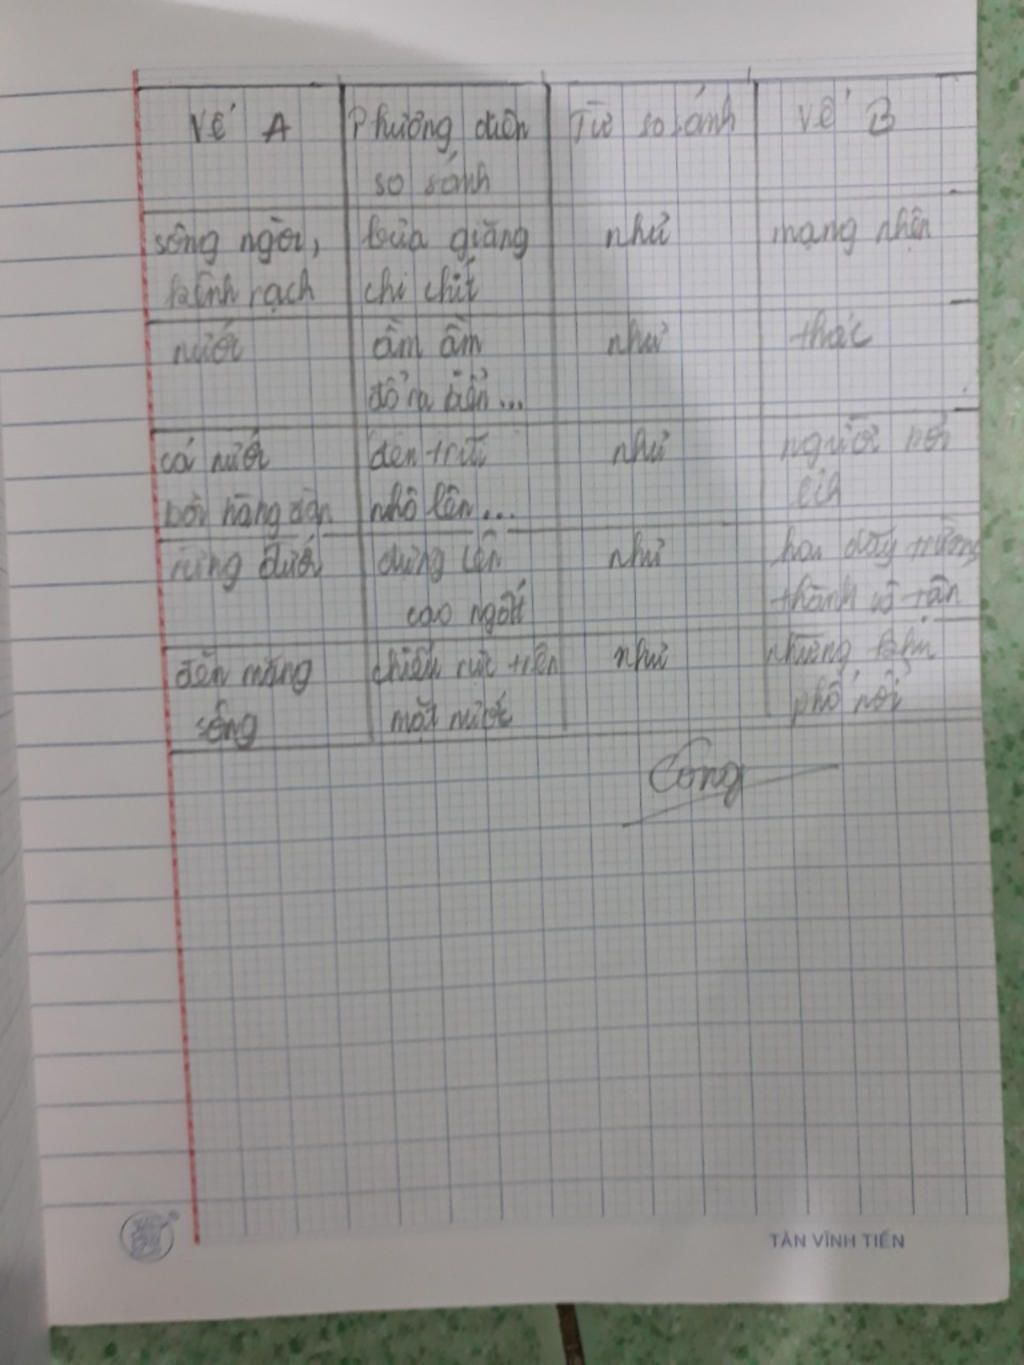 Vế A
Phương diện
so sánh
Từ so sánh
Vế B
sông ngòi,
kênh rạch
bủa giăng
chi chít
như
mạng nhện
nước
ầm ầm
đổ ra biển...
như
thác
cá nước
bơi hàng đàn
đen trũi
nhô lên...
như
người bơi
ếch
rừng đước
dựng lên
cao ngất
như
hai dãy trường
thành vô tận
đèn măng
sông
chiếu rực trên
mặt nước
như
những khu
phố nổi
Công
TÂN VĨNH TIẾN